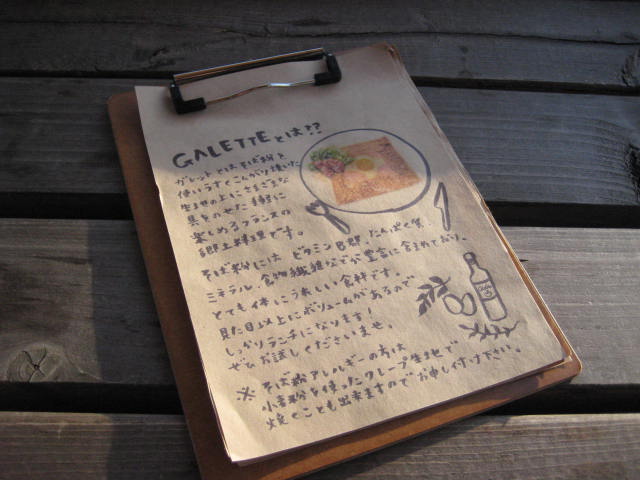 GALETTEとは!?
ガレットとはそば粉を
使いうすくこんがり焼いた
生地の上にさまざまな
具をのせた 軽に
楽しめるフランスの
郷土料理です。
そば粉には ビタミンB群、たんぱく質
ミネラル、食物繊維などが豊富に含まれており、
とても体にうれしい食材です。
見た目以上にボリュームがあるので
しっかりランチになります!
ぜひお試しくださいませ。
※ そば粉アレルギーの方は
小麦粉を使ったクレープ生地で
焼くことも出来ますので お申し付け下さい。